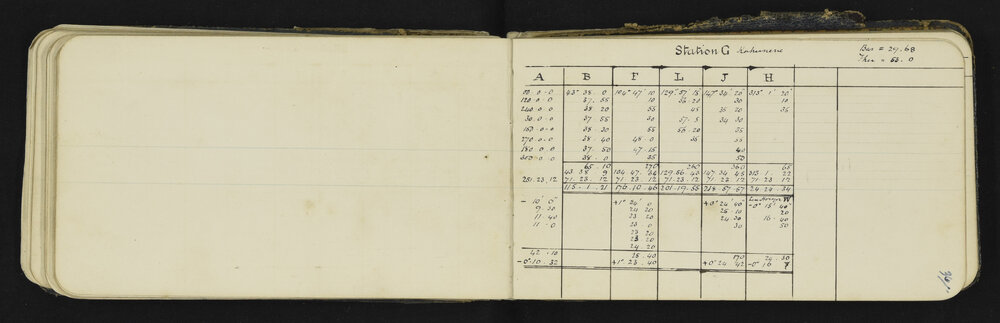 Station G
Bar = 29.68
Ther = 53.0
A B F L J H
00.0.0 43° 38.0 104° 47' 10 129° 57.15 147° 34' 20" 313° 1' 20"
120.0.0 37.55 10 56.20 30 10
240.0.0 38 20 55 45 35 20 35
30.0.0 37.55 30 57.5 34 30
150.0.0 38.30 55 56.20 35
270.0.0 38.40 48.0 35 55
180.0.0 37.50 47.15 40
38.0 35 50
65.10 270 260 65
43 38 9 104 47.34 129.56.43 147.34.45 313 1.22
251.23.12 71.23.12 71.23.12 71.23.12 71.23.12 71 23.12
115.1.21 176.10.46 201.19.55 218.57.57 24.24.34
- 10' 0" +1° 24' 0 +0° 24' 40" -0° 15' 40"
9 30 24 20 25.10 20
11 40 23 20 24.30 16.40
11.0 23 0 30 50
23 20
23 20
24.20
42.10 25.40 170 24 30
-0° 10.32 +1° 23.40 +0° 24' 42 -0° 16 7